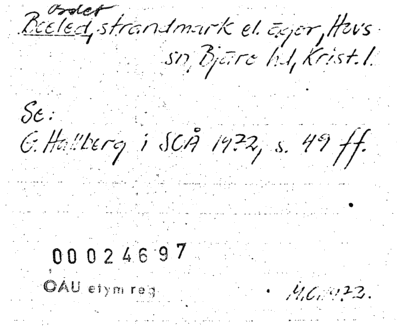 ordet
Beeled, strandmark el. ägor, Hovs
sn, Bjäre hd, Krist. l.
Se:
G. Hallberg i SOÅ 1972, s. 49 ff.
00024697
OAU etym reg
M.C. 1973.